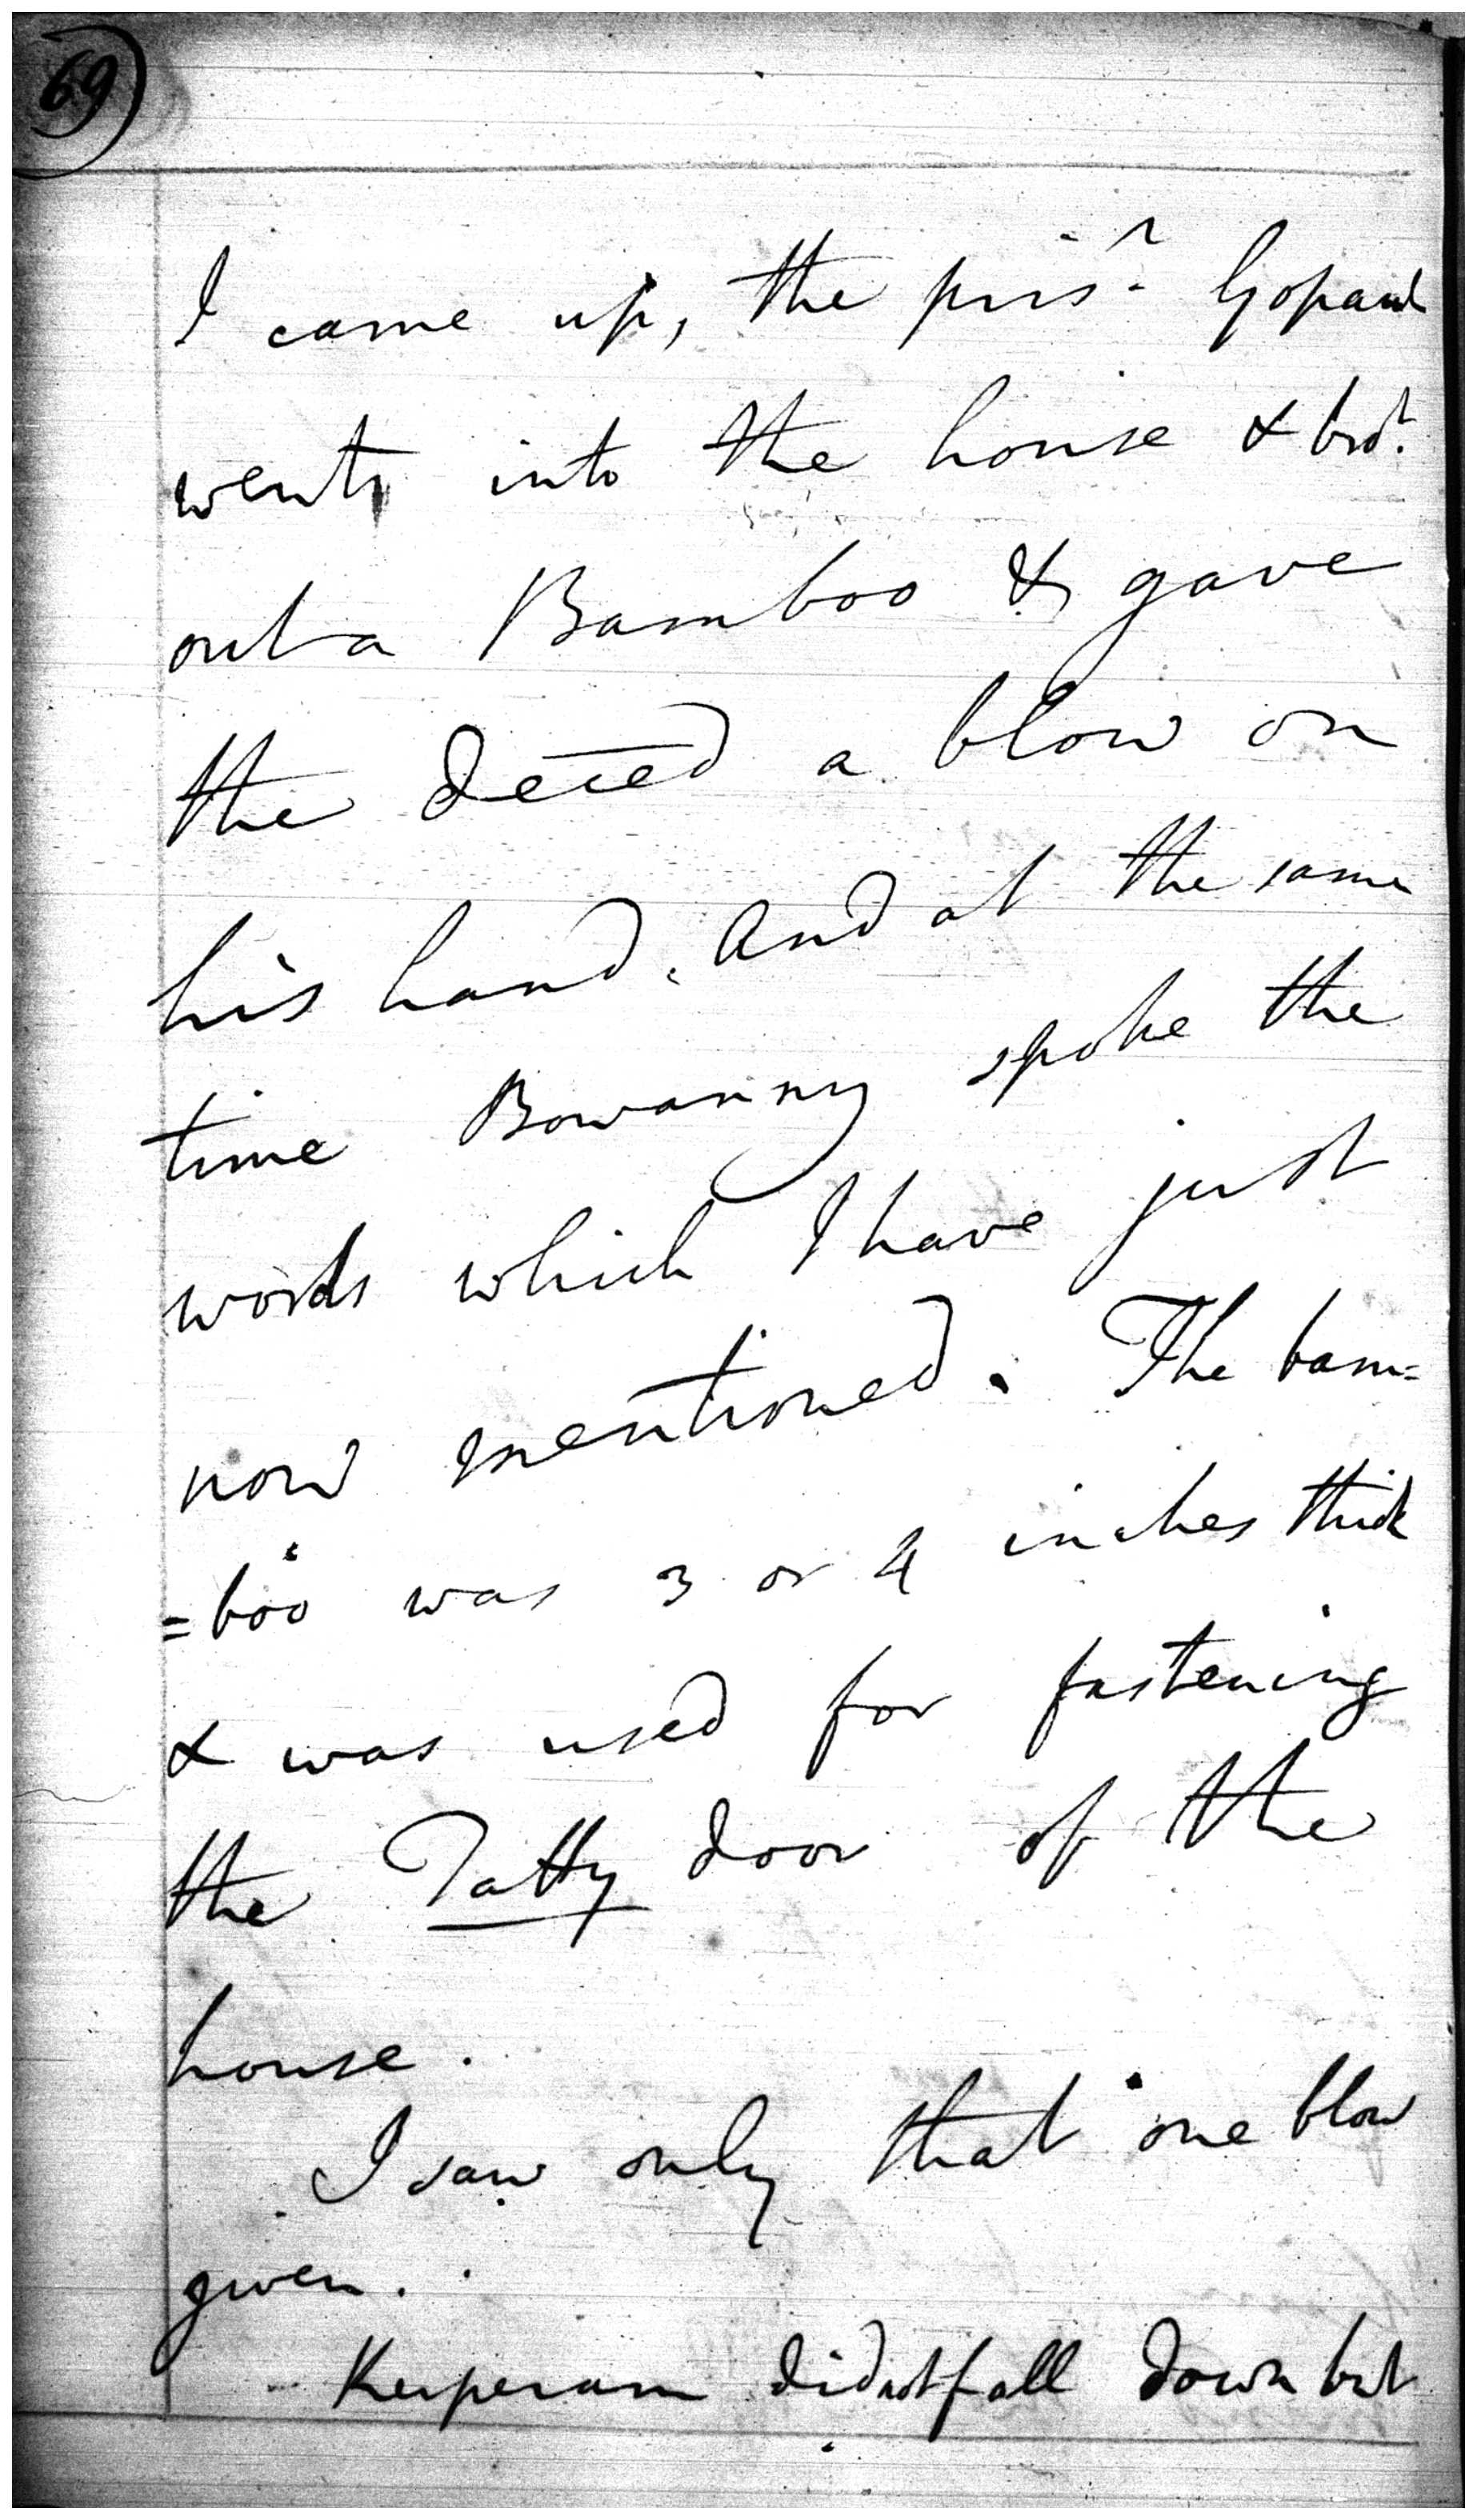 69
I came up, the pris.r Gopaul
went into the house & bro.t
out a Bamboo & gave
the deced a blow on
his hand. And at the same
time Bowanny spoke the
words which I have just
now mentioned. The bam=
=boo was 3 or 4 inches thick
& was used for fastening
the Tatty door of the
house.
I saw only that one blow
given.
Kerperam did not fall down but